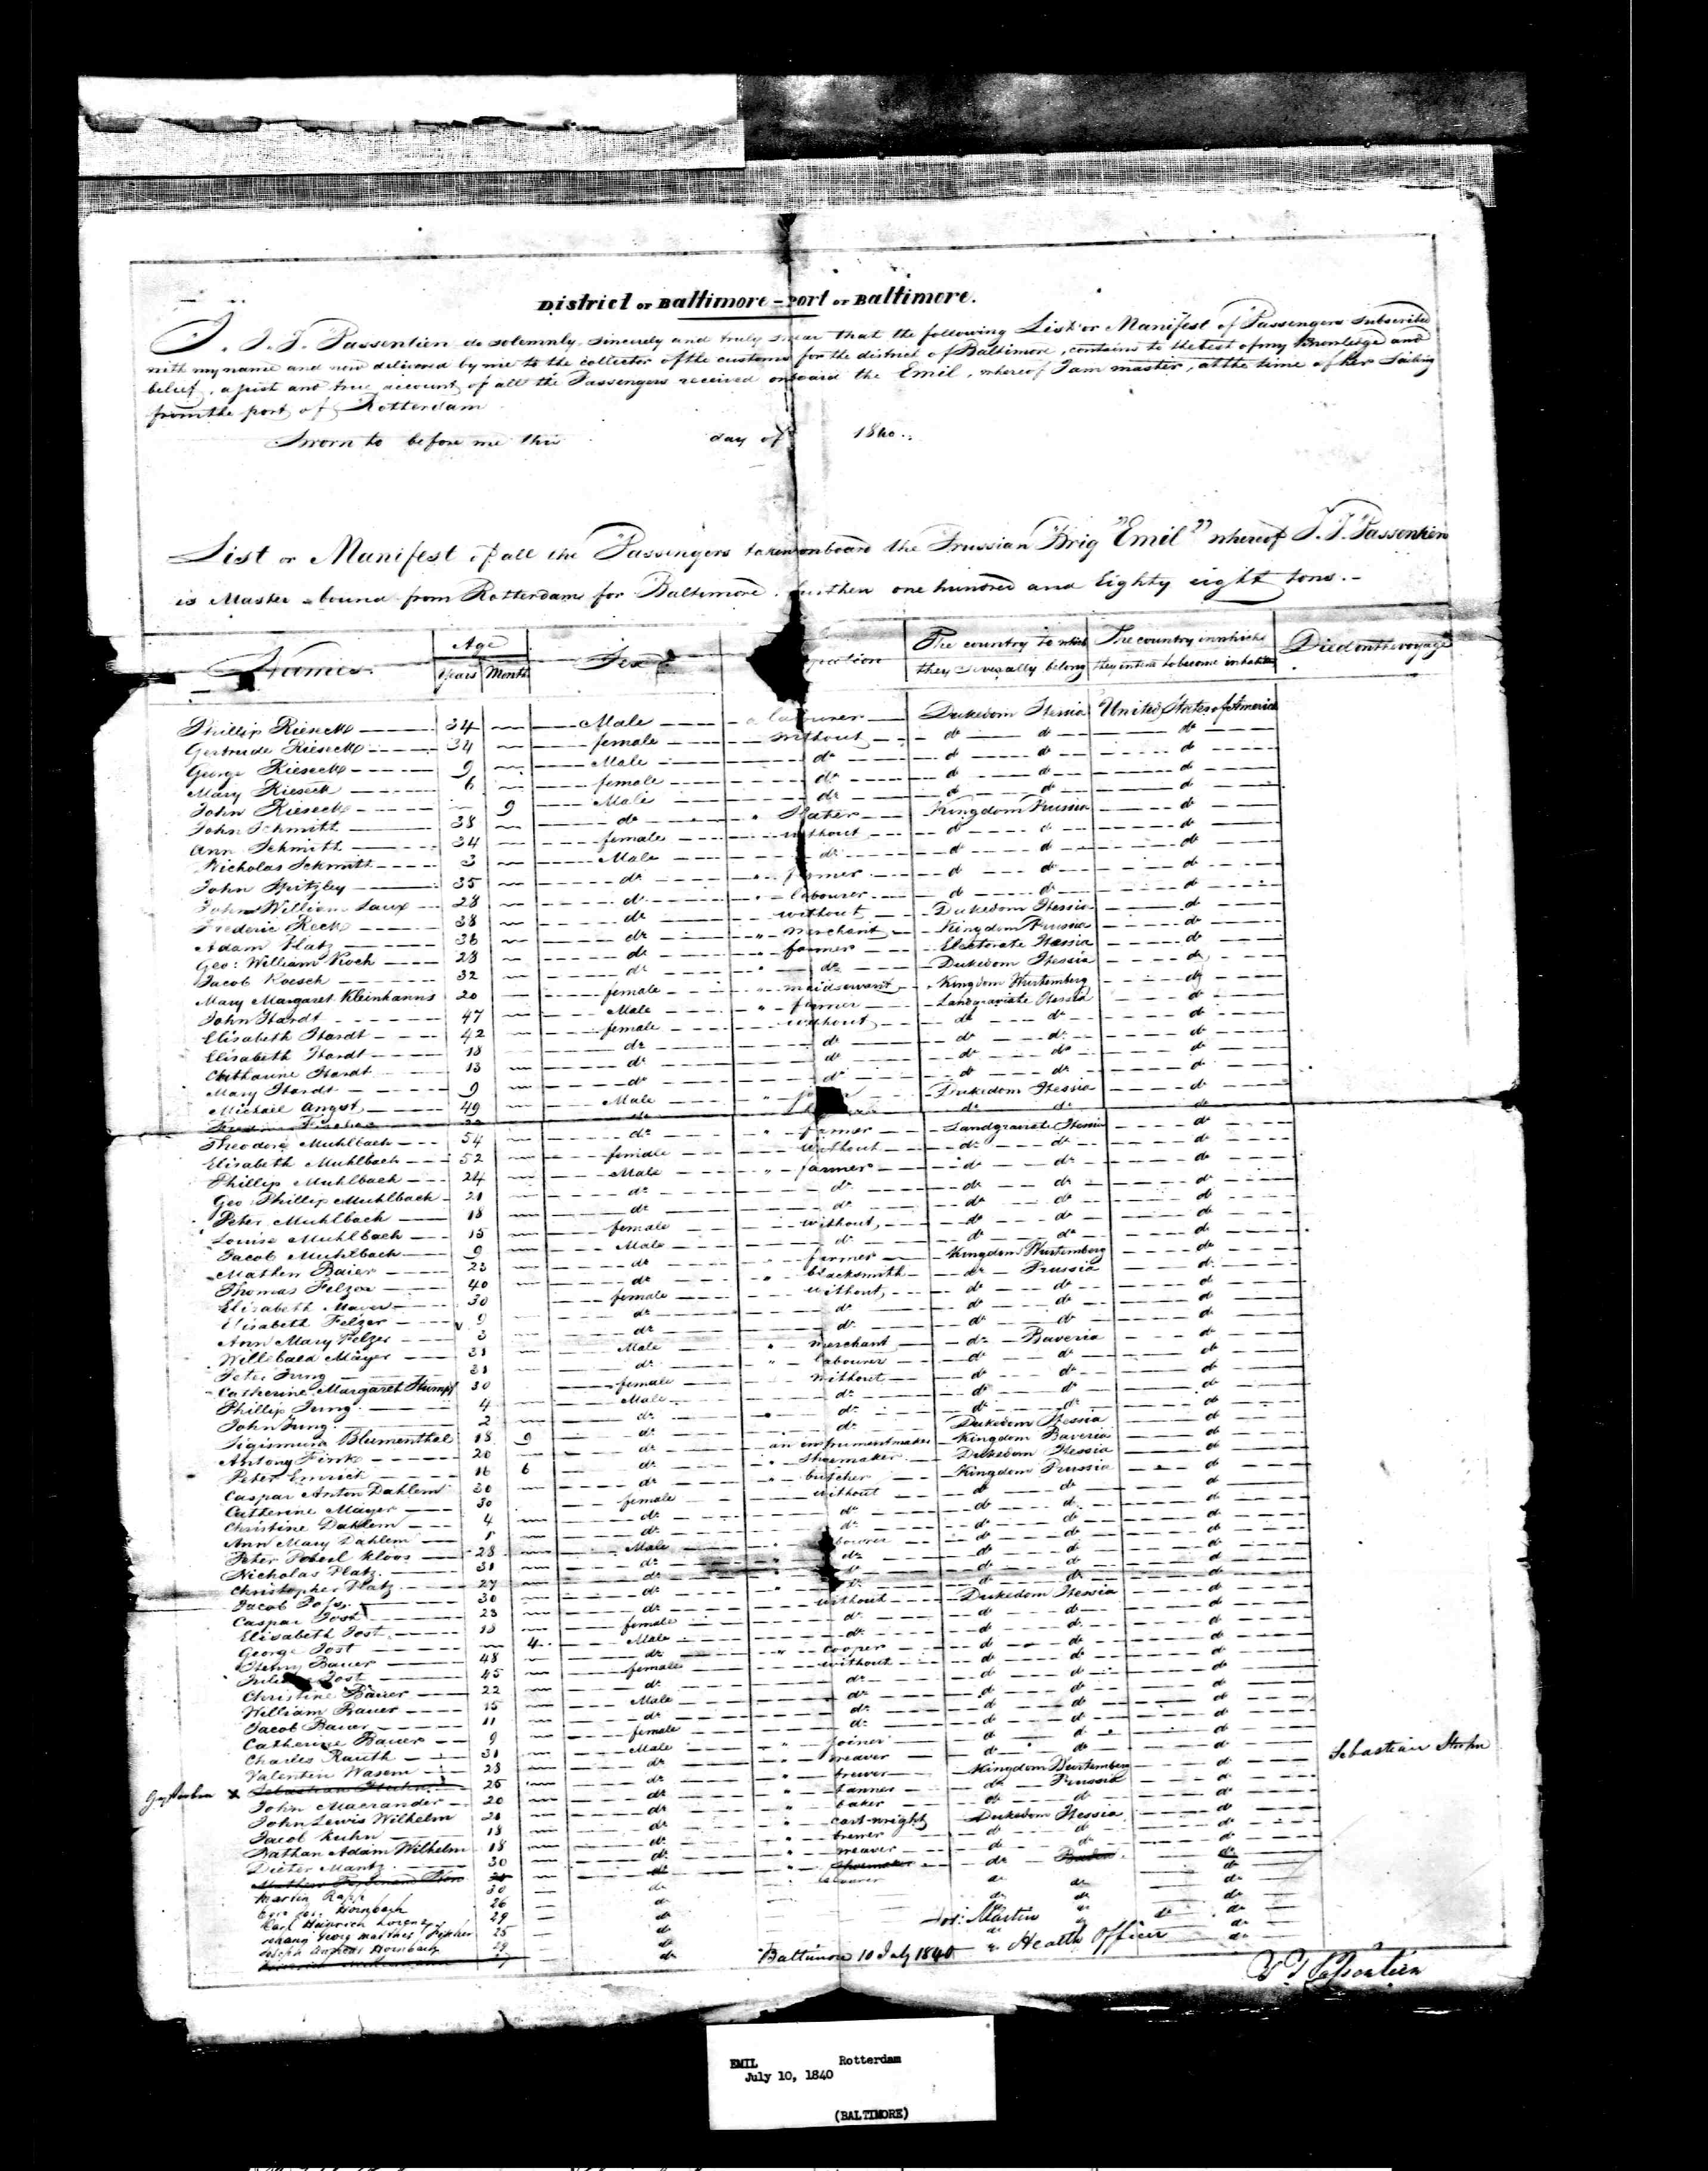 District or Baltimore - Port or Baltimore.
I. J. J. Passentien do solemnly, sincerely and truly swear that the following List or Manifest of Passengers subscribed
with my name and now delivered by me to the collector of the customs for the district of Baltimore, contains to the best of my knowledge and
belief, a just and true account of all the Passengers received onboard the Emil, whereof I am master, at the time of her sailing
from the port of Rotterdam
Sworn to before me this day of 1840.
List or Manifest of all the Passengers taken onboard the Prussian Brig "Emil" whereof J. J. Passentien
is Master bound from Rotterdam for Baltimore. burthen one hundred and Eighty eight tons.-
Names. Age Years Month Sex The country to which they severally belong The country in which they intend to become inhabit Died on the voyage
Phillip Rieseck 34 Male a labourer Dukedom Hessia United States of America
Gertrude Rieseck 34 female without do do do
George Rieseck 9 Male do do do do
Mary Rieseck 6 female do do do do
John Rieseck 9 Male do do do do
John Schmitt 38 do Slater Kingdom Prussia do
Ann Schmitt 34 female without do do do
Nicholas Schmitt 3 Male do do do do
John Spitzley 35 do farmer do do do
John William Saux 28 do labourer do do do
Frederic Reck 38 do without Dukedom Hessia do
Adam Platz 36 do merchant Kingdom Prussia do
Geo: William Koch 28 do farmer Electorate Hessia do
Jacob Roesch 32 do do Dukedom Hessia do
Mary Margaret Kleinhanns 20 female maidservant Kingdom Wurtemberg do
John Hardt 47 Male farmer Landgraviate Hessia do
Elisabeth Hardt 42 female without do do do
Elisabeth Hardt 18 do do do do do
Catharine Hardt 13 do do do do do
Mary Hardt 9 do do do do do
Michael Angst 49 Male Dukedom Hessia do
do do do
Theodore Muhlbach 54 do farmer Landgraviate Hessia do
Elisabeth Muhlbach 52 female without do do do
Phillip Muhlbach 24 Male farmer do do do
Geo: Phillip Muhlbach 21 do do do do do
Peter Muhlbach 18 do do do do do
Louise Muhlbach 15 female without do do do
Jacob Muhlbach 9 Male do do do do
Mathew Baier 23 do farmer Kingdom Wurtemberg do
Thomas Felzer 40 do blacksmith do Prussia do
Elisabeth Mayer 30 female without do do do
Elisabeth Felzer 9 do do do do do
Ann Mary Felzer 3 do do do do do
Willibald Mayer 31 Male merchant do Baveria do
Peter Jung 31 do labourer do do do
Catherine Margaret Stumpf 30 female without do do do
Phillip Jung 4 Male do do do do
John Jung 2 do do do do do
Sigismund Blumenthal 18 9 do an instrumentmaker Dukedom Hessia do
Antony Fink 20 do shoemaker Kingdom Baveria do
Peter Emrich 16 6 do butcher Dukedom Hessia do
Caspar Anton Dahlem 30 do without Kingdom Prussia do
Catherine Mayer 30 female do do do do
Christine Dahlem 4 do do do do do
Ann Mary Dahlem do do do do do
Peter Kloos 28 Male do do do
Nicholas Platz 31 do do do do do
Christopher Platz 27 do do do do do
Jacob 30 do do do do do
Caspar Jost 23 do without Dukedom Hessia do
Elisabeth Jost 18 female do do do do
George Jost 4 Male do do do do
Henry Bauer 48 do cooper do do do
Jost 45 female without do do do
Christine Bauer 22 do do do do do
William Bauer 15 Male do do do do
Jacob Bauer 11 do do do do do
Catherine Bauer 9 female do do do do
Charles Rauth 31 Male joiner do do do
Valentin Wasem 28 do weaver do do do
x 25 do brewer Kingdom Wurtemberg do Sebastian
John Macrander 20 do tanner do Prussia do
John Lewis Wilhelm 21 do baker do do do
Jacob Kuhn 18 do cartwright Dukedom Hessia do
Nathan Adam Wilhelm 18 do brewer do do do
Dieter Mantz 30 do weaver do do do
do shoemaker do Baden do
Martin Rapp 30 do labourer do do do
Hornbach 26 do do do do
Carl Heinrich Lorenz 29 do
Georg Fischer 25 do
Joseph Andreas Hornbach 29 do
Martin
Baltimore 10 July 1840 Health Officer
J. J. Passentien
EMIL Rotterdam
July 10, 1840
(BALTIMORE)